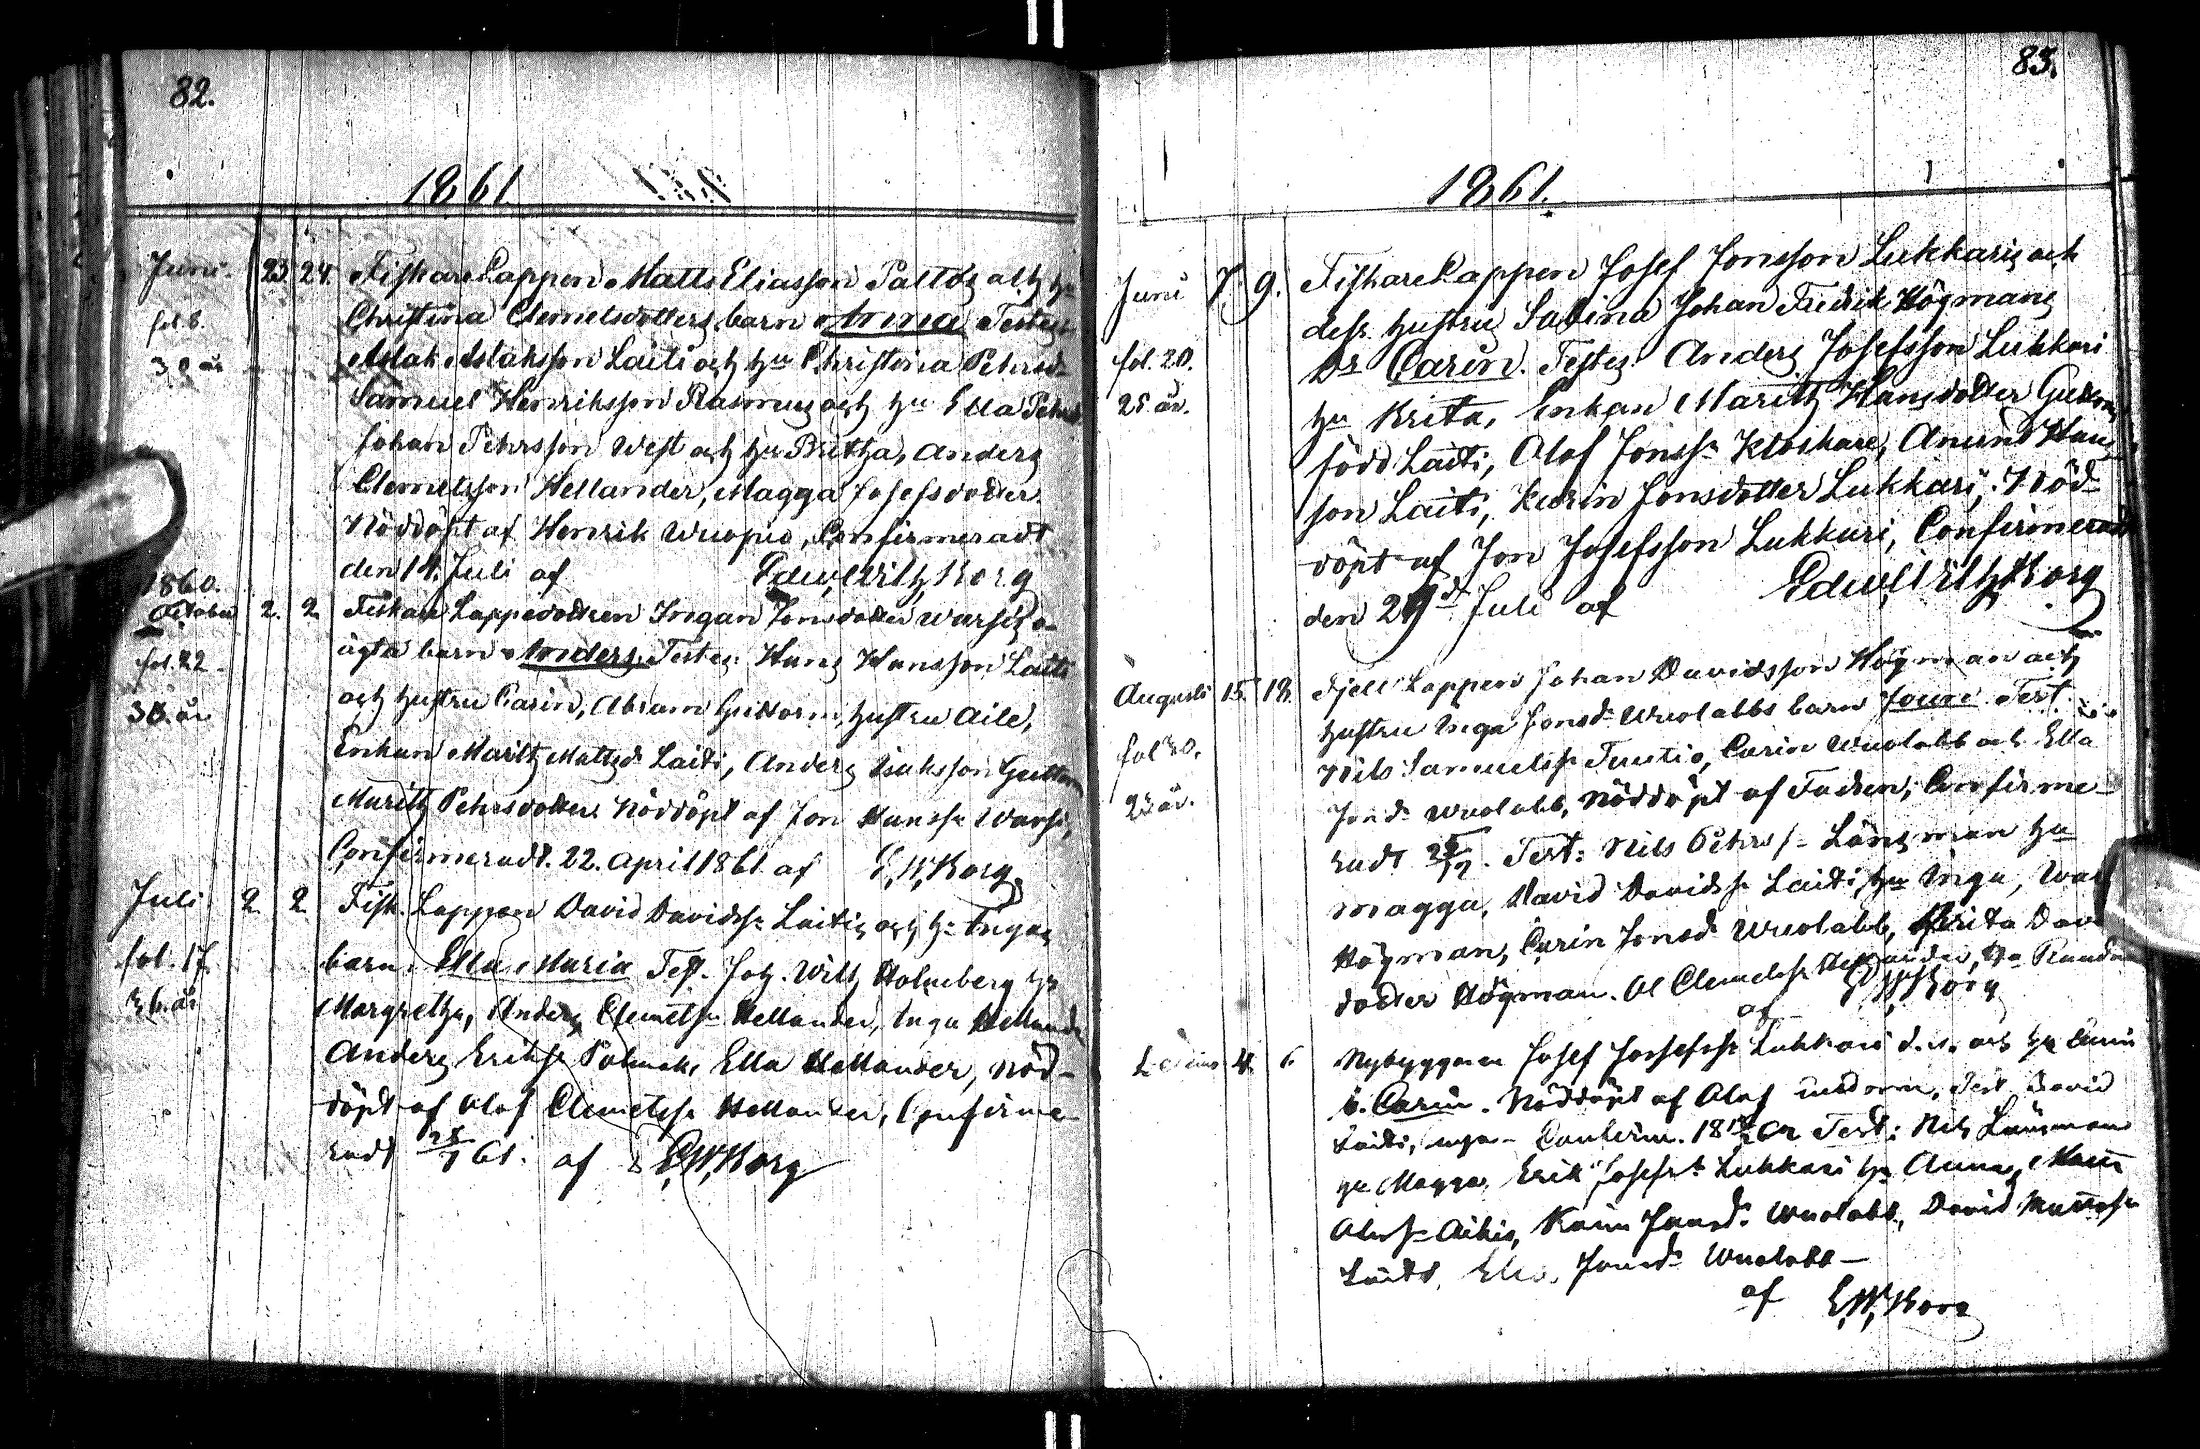 82.
1861
Juni. 23. 24. Fiskare Lappen Matts Eliasson Paltos och hu
fol. 8. Christina Clemetsdotters barn Anna Testes
30 år Aslak Aslaksson Laiti och hu Christina Pehrsd.
Samuel Henriksson Rasmus och hu Ella Pehrsd
Johan Pehrsson West och hu Britha, Anders
Clemetsson Hellander, Magga Josefsdotter
Nöddöpt af Henrik Wuopio, Confirmeradt
den 14. Juli af Edw. Wilh. Borg
1860.
October 2. 2. Fiskare Lappdottren Ingan Jonsdotter Warsis o-
fol. 22. ägta barn Anders. Testes. Hans Hansson Laiti
30. år och hustru Carin, Abram Guttorm, hustru Aile,
Enkan Marith Mattsd. Laiti, Anders Isaksson Guttorm
Marith Pehrsdotter. Nöddöpt af Jon Hanss. Warsi,
Confirmeradt. 22. April 1861 af E. W. Borg.
Juli 2. 2. Fisk. Lappen David Davidss. Laitis och h. Ingas
fol. 17. barn. Ella Maria Test. Joh. Wilh. Holmberg hu
36. år Margretha, Anders Clemetss. Hellander, Inga Hellander
Anders Erikss. Ella Hellander, Nöd-
döpt af Olof Clemetss. Hellander, Confirme-
radt 28/7 61. af E. W. Borg
83.
1861.
Juni 7. 9. Fiskare Lappen Josef Jonsson Lukkaris och
dess hustru Sabina Johan Fredrik Högmans
fol. 20. Dr Carin. Testes. Anders Josefsson Lukkari
25 år. hu Krita, Enkan Marith Hansdotter Guttorm
född Laiti, Olof Jonss. Klockare, Amund Hans-
son Laiti, Karin Jonsdotter Lukkari, Nöd-
döpt af Jon Josefsson Lukkari, Confirmeradt
den 29d Juli af Edw. Wilh. Borg
Augusti 15. 18. Fjell Lappen Johan Davidsson Högman och
fol 30. hustru Inga Jonsd. Wuolabbs barn Jouni. Test.
25 år. Nils Samuelss. Carin Wuolabb och Ella
Jonsd. Wuolabb, Nöddöpt af Fadren, Confirme-
radt Test: Nils Pehrss. Länsman hu
Magga, David Davidss. Laiti, hu Inga,
Högman, Carin Jonsd. Wuolabb, Brita Davids
dotter Högman. Ol Clemetss. Hellander,
af E. W. Borg
4. 6 Nybyggaren Josef Josefss. Lukkari och hu Carin
b. Carin. Nöddöpt af Olof Test. David
Laiti, Confirm. Test: Nils Länsman
hu Magga, Erik Josefss. Lukkari hu Anna,
Olofss. Aikio, Karin Jonsd. Wuolabb, David
Laiti, Ella Jonsd. Wuolabb –
af E. W. Borg